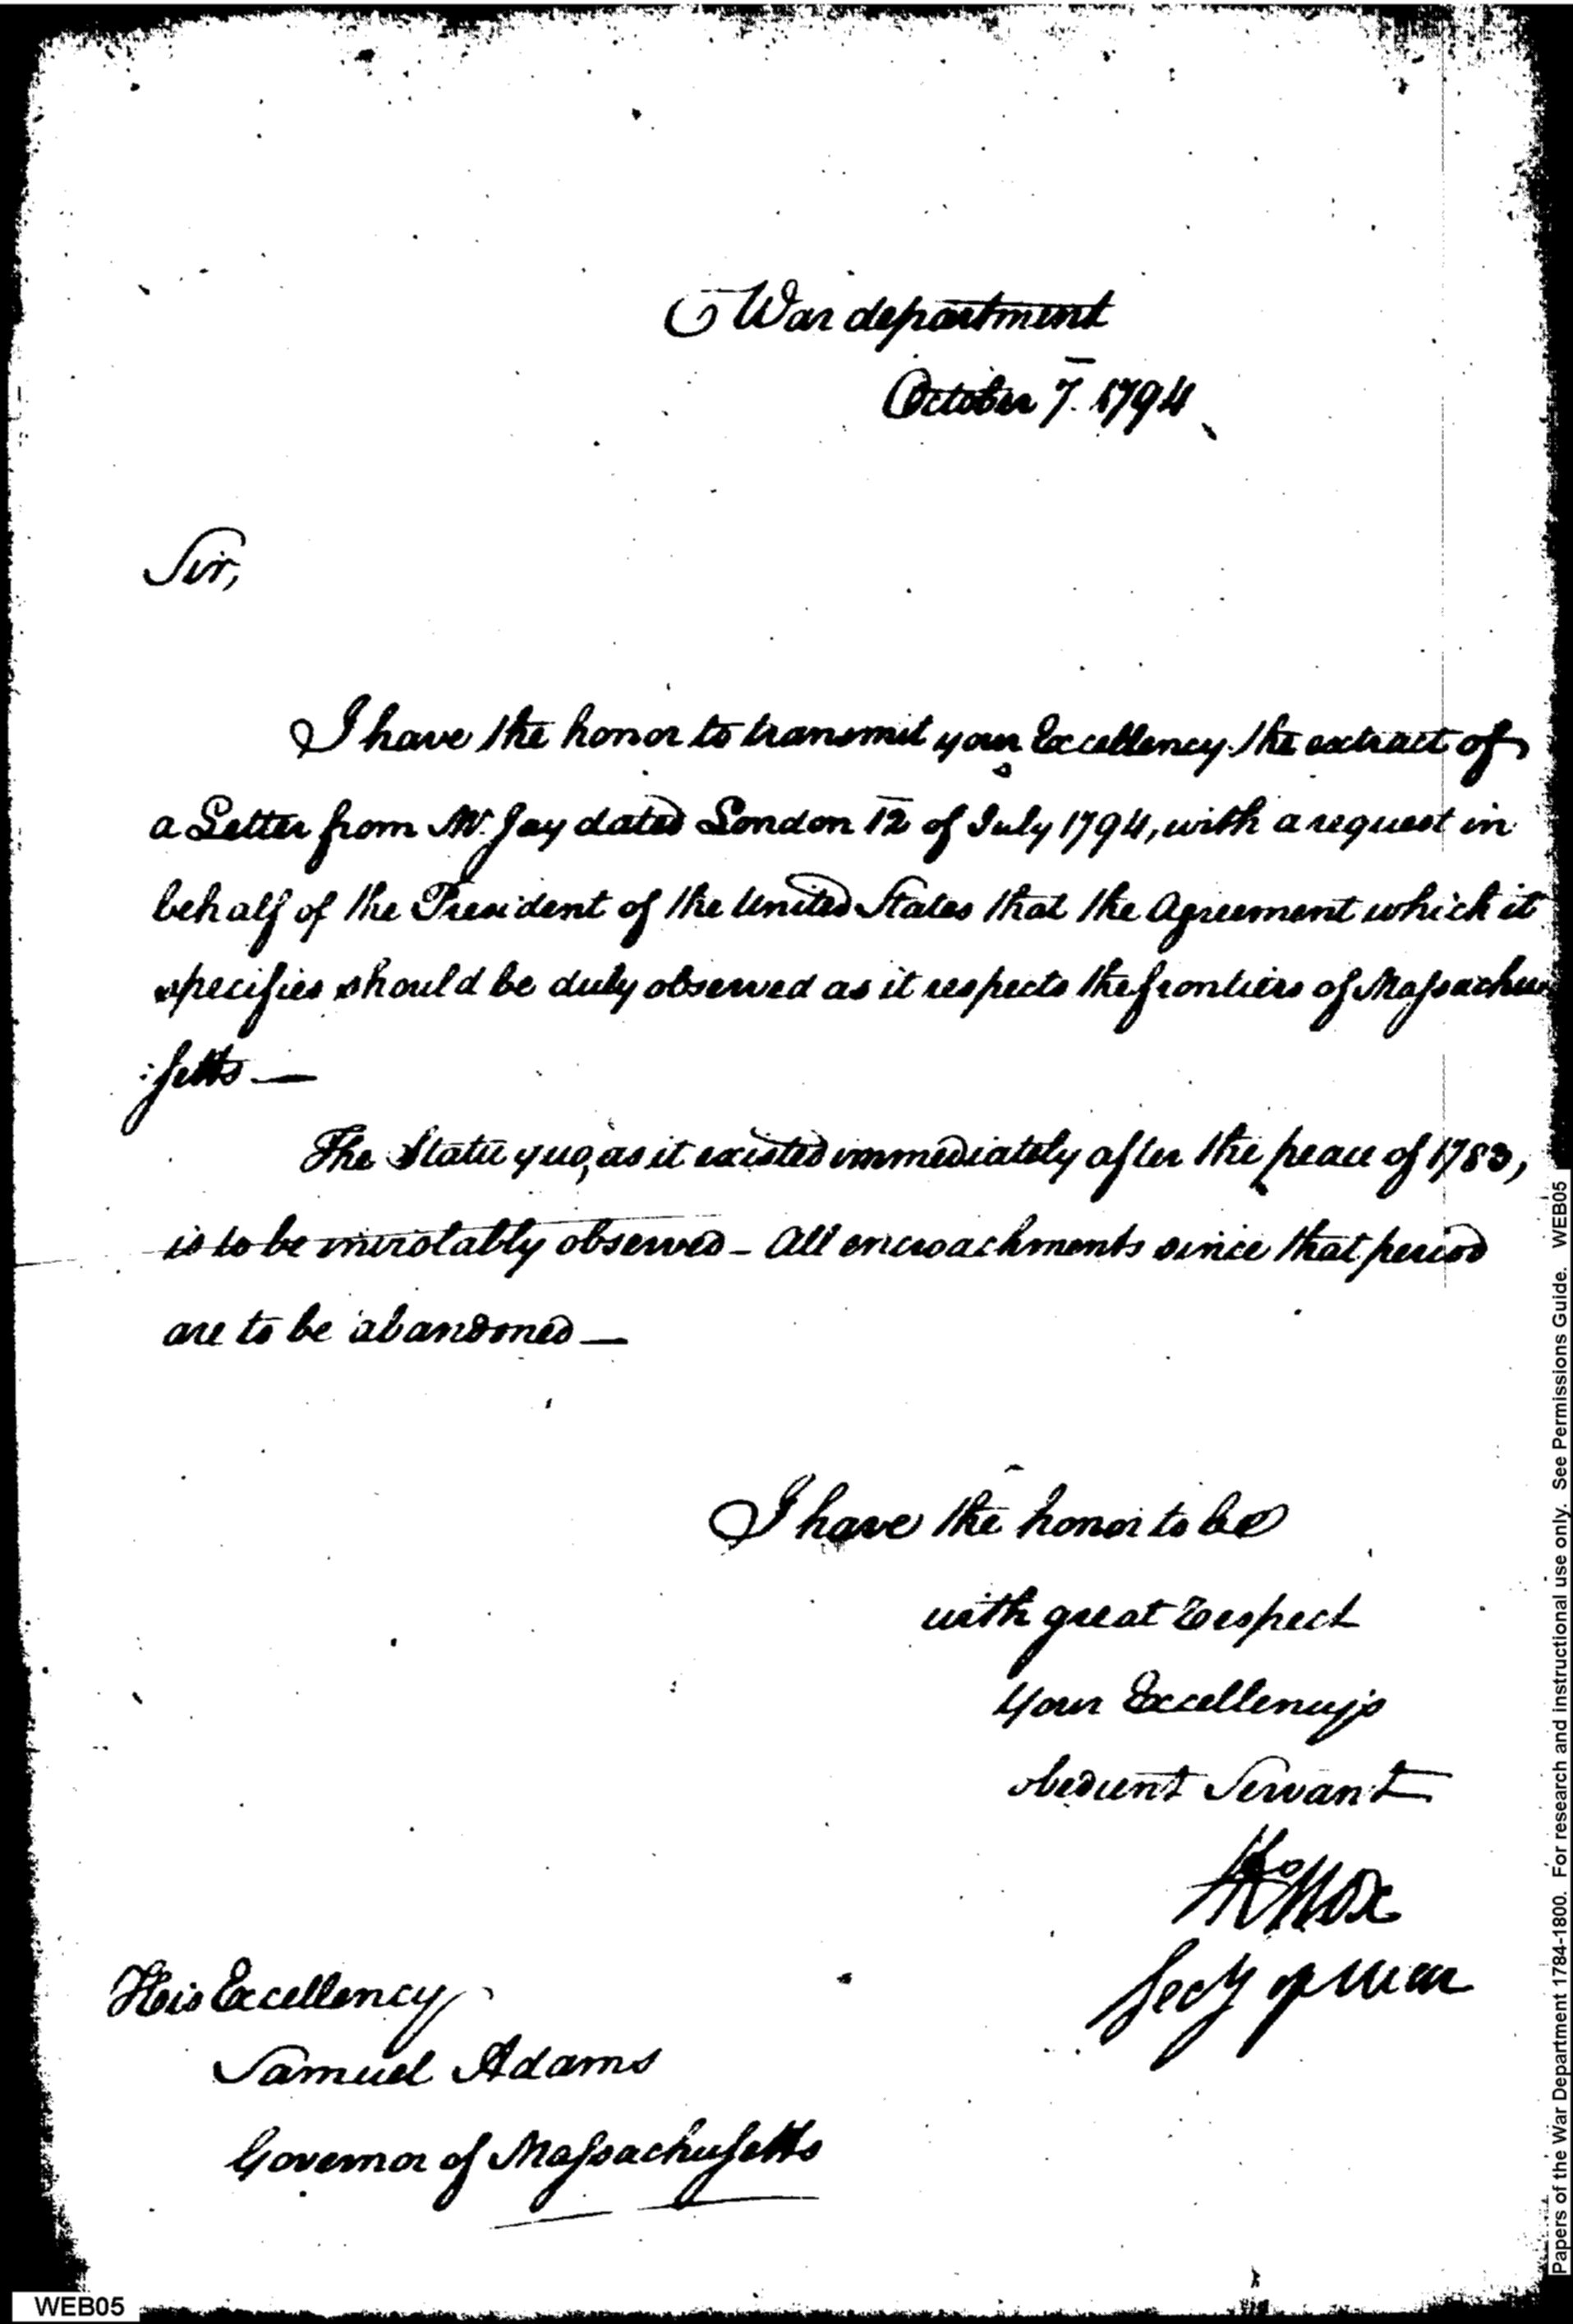 War department
October 7. 1794
Sir,
I have the honor to transmit your Excellency the extract of
a Letter from Mr. Jay dated London 12 of July 1794, with a request in
behalf of the President of the United States that the Agreement which it
specifies should be duly observed as it respects the frontiers of Massachu
:setts —
The Statu quo, as it existed immediately after the peace of 1783,
is to be inviolably observed - All encroachments since that period
are to be abandoned —
I have the honor to be
with great respect
Your Excellency's
obedient Servant
HKnox
Secy of War
His Excellency
Samuel Adams
Governor of Massachusetts
Papers of the War Department 1784-1800. For research and instructional use only. See Permissions Guide. WEB05
WEB05